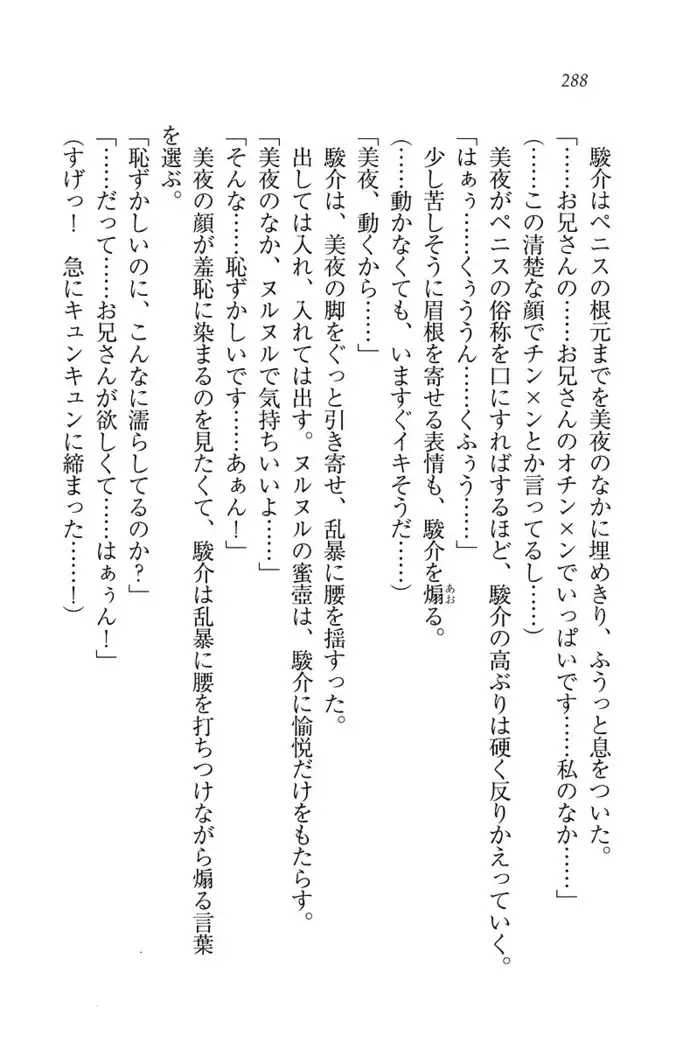 288
駿介はペニスの根元までを美夜のなかに埋めきり、ふうっと息をついた。
「……お兄さんの……お兄さんのオチン×ンでいっぱいです……私のなか……」
(……この清楚な顔でチン×ンとか言ってるし……)
美夜がペニスの俗称を口にすればするほど、駿介の高ぶりは硬く反りかえっていく。
「はぁぅ……くぅううん……くふぅう……」
少し苦しそうに眉根を寄せる表情も、駿介を煽る。
あお
(……動かなくても、いますぐイキそうだ……)
「美夜、動くから……」
駿介は、美夜の脚をぐっと引き寄せ、乱暴に腰を揺すった。
出しては入れ、入れては出す。ヌルヌルの蜜壺は、駿介に愉悦だけをもたらす。
「美夜のなか、ヌルヌルで気持ちいいよ……」
「そんな……恥ずかしいです……あぁん!」
美夜の顔が羞恥に染まるのを見たくて、駿介は乱暴に腰を打ちつけながら煽る言葉
を選ぶ。
「恥ずかしいのに、こんなに濡らしてるのか?」
「……だって……お兄さんが欲しくて……はぁぅん!」
(すげっ! 急にキュンキュンに締まった……!)